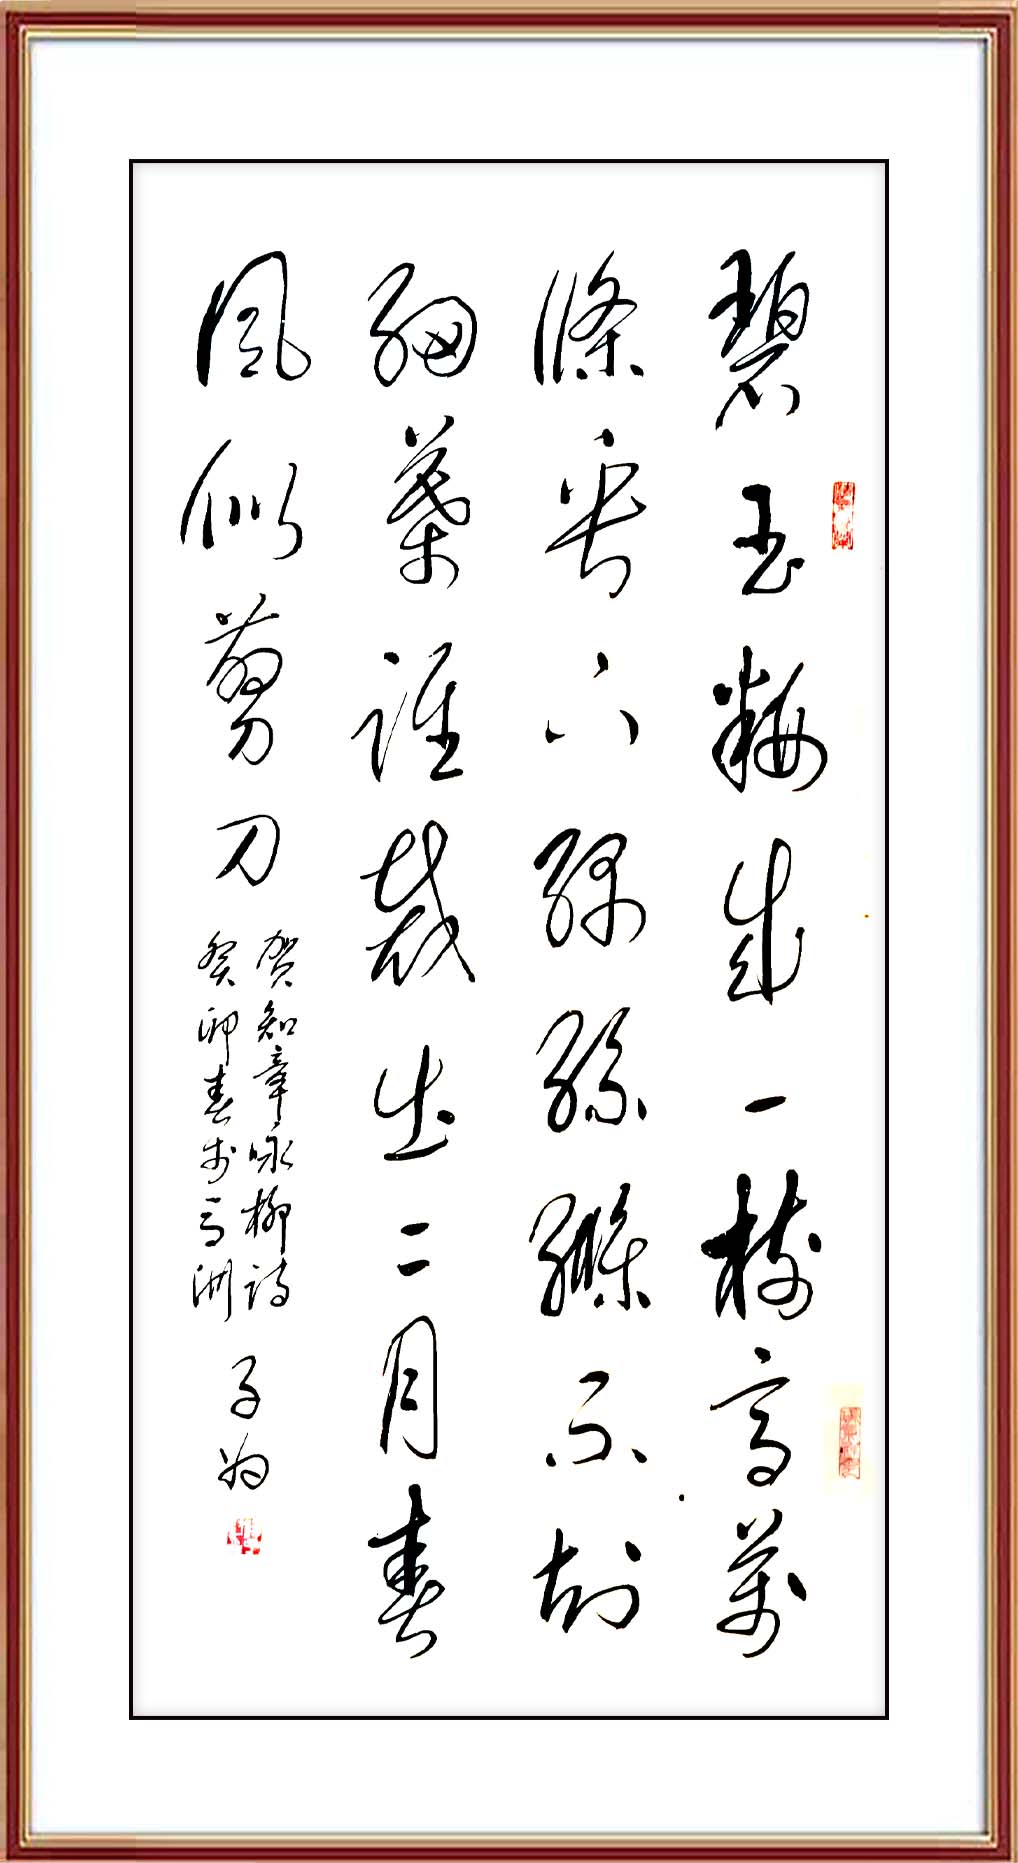 碧玉粧成一樹高萬
條垂下綠絲縧不知
細葉誰裁出二月春
風似剪刀
贺知章咏柳诗
癸卯春於洲
子